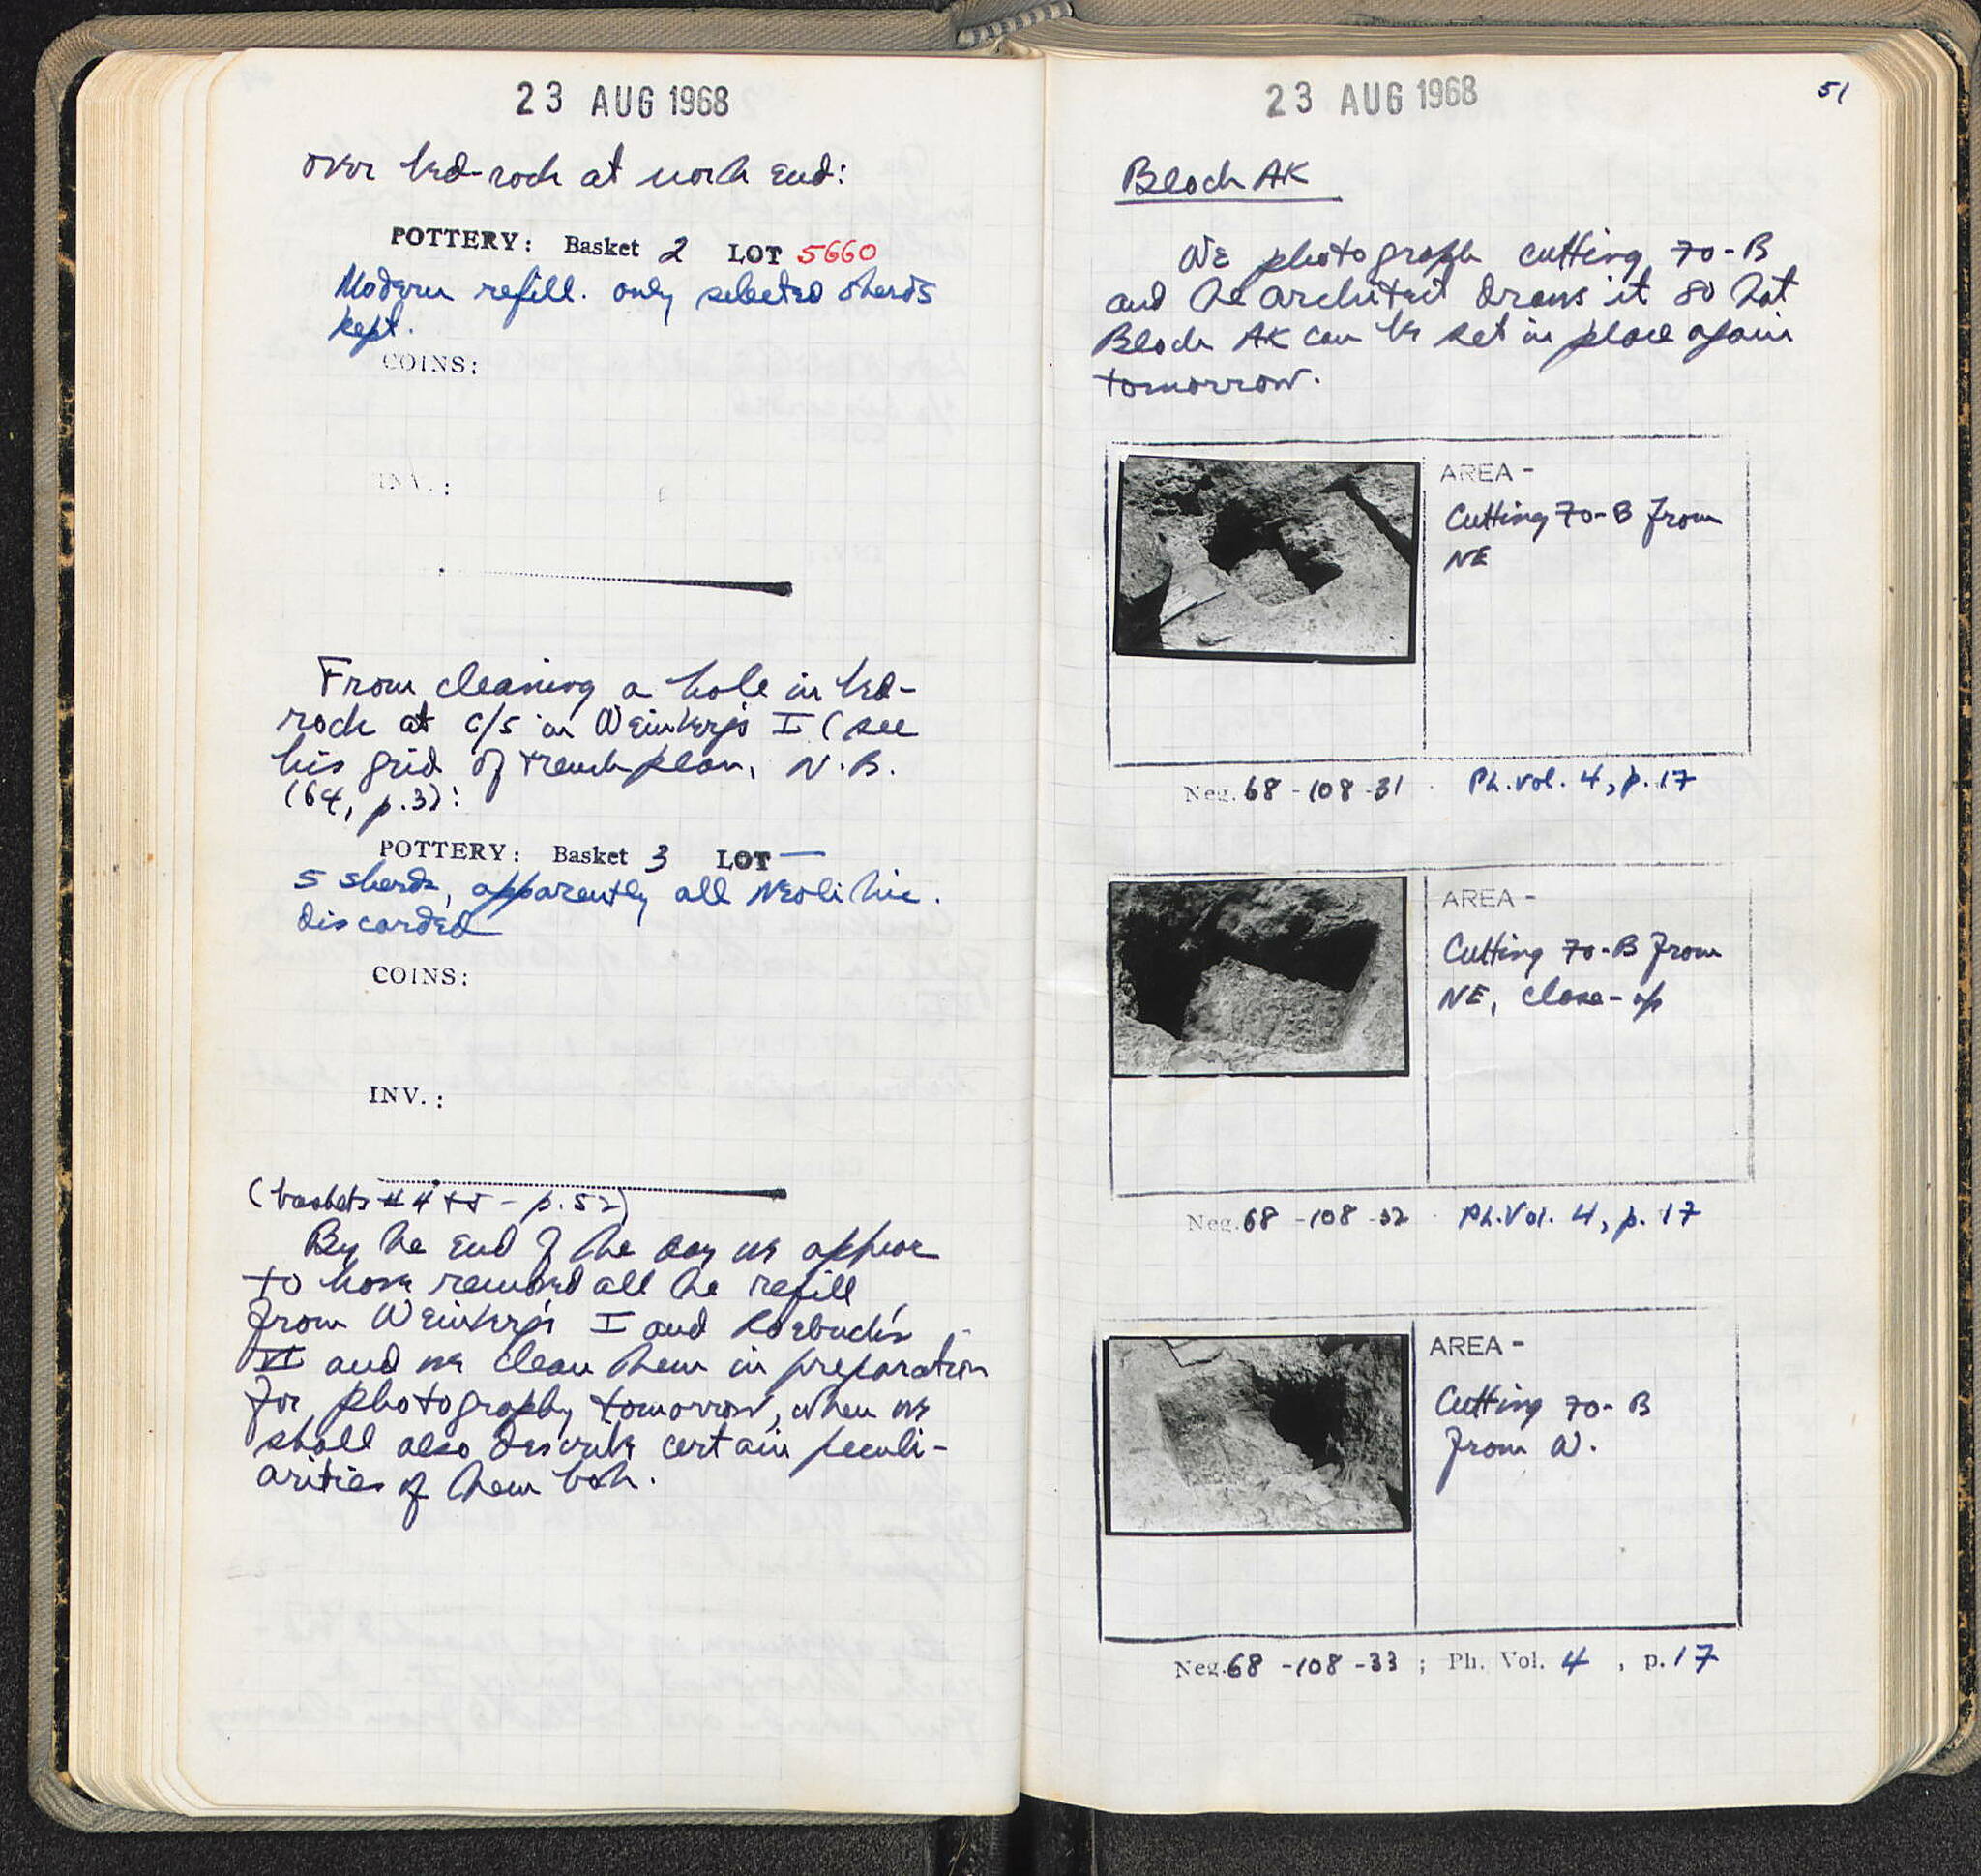 23 AUG 1968
over bed-rock at north end:
POTTERY: Basket 2 LOT 5660
Modern refill. only selected sherds
kept.
COINS:
INV.:
From cleaning a hole in bed-
rock at c/5 in Weinberg's I (see
his grid of trench plan, N.B.
164, p.3):
POTTERY: Basket 3 LOT —
5 sherds, apparently all Neolithic.
discarded
COINS:
INV.:
(baskets #4 +5 - p.52)
By the end of the day we appear
to have removed all the refill
from Weinberg's I and Roebuck's
VI and we clean them in preparation
for photography tomorrow, when we
shall also describe certain peculi-
arities of them both.
23 AUG 1968
51
Block AK
We photograph cutting 70-B
and the architect draws it so that
Block AK can be set in place again
tomorrow.
AREA -
Cutting 70-B from
NE
Neg. 68-108-31 Ph. vol. 4, p. 17
AREA -
Cutting 70-B from
NE, close-up
Neg. 68-108-32 Ph. Vol. 4, p. 17
AREA -
Cutting 70-B
from W.
Neg. 68-108-33 ; Ph. Vol. 4, p. 17